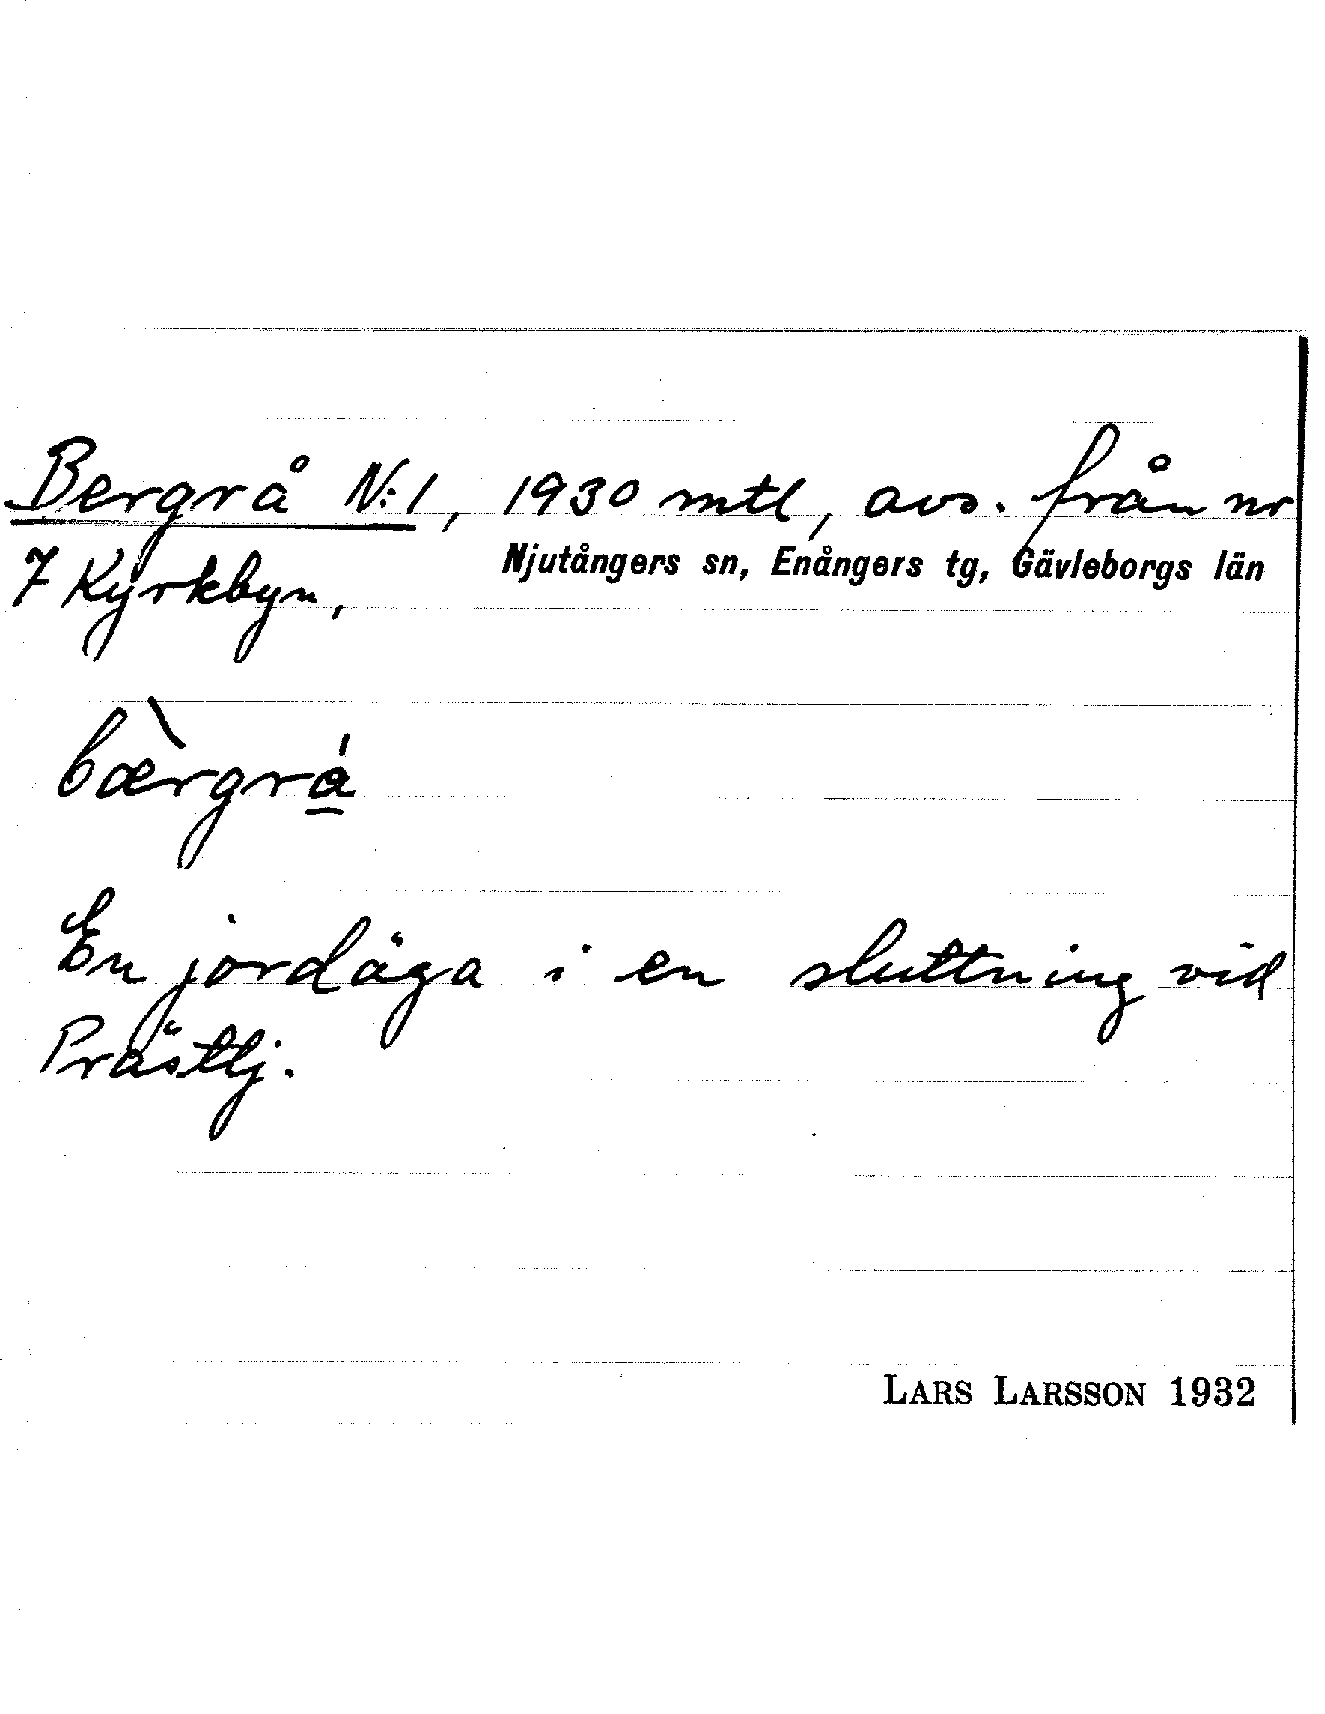 Bergrå N:1, 1930 mtl, avs. från nr
Njutångers sn, Enångers tg, Gävleborgs län
7 Kyrkbyn,
bæ̀rgrá̲
En jordäga i en sluttning vid
Prästtj.
LARS LARSSON 1932